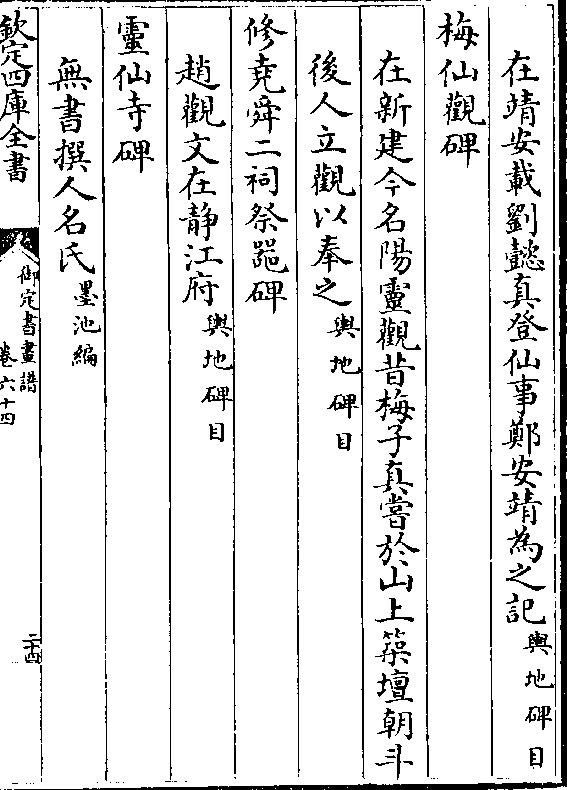 在靖安載劉懿真登仙事鄭安靖為之記輿地碑目
梅仙觀碑
在新建今名陽靈觀昔梅子真嘗於山上築壇朝斗
後人立觀以奉之輿地碑目
修堯舜二祠祭器碑
趙觀文在靜江府輿地碑目
靈仙寺碑
無書撰人名氏墨池編
欽定四庫全書
御定書畫譜
卷六十四
二十四